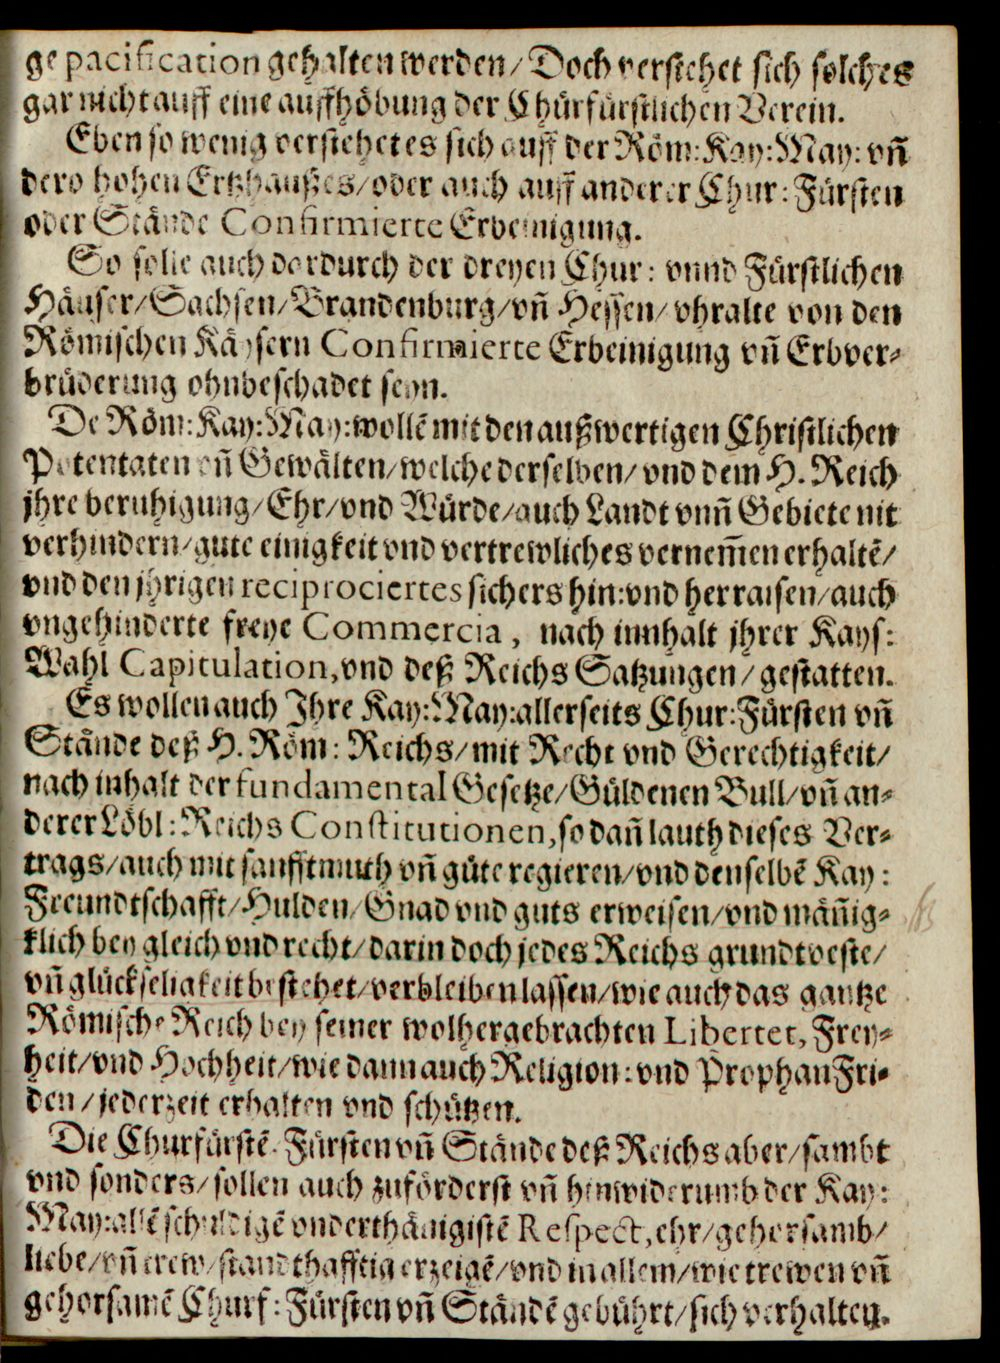 ge pacification gehalten werden/ Doch verstehet sich solches
gar nicht auff eine auffhöbung der Chürfürstlichen Verein.
Eben so wenig verstehet es sich auff der Röm: Kay: May: vn̄
dero hohen Ertzhaußes/ oder auch auff anderer Chur: Fürsten
oder Stände Confirmierte Erbeinigung.
So solle auch dardurch der dreyen Chur: vnnd Fürstlichen
Häuser/ Sachsen/ Brandenburg/ vn̄ Hessen/ vhralte von den
Römischen Käysern Confirmierte Erbeinigung vn̄ Erbver-
brüderung ohnbeschadet seyn.
De Röm: Kay: May: wollē mit den außwertigen Christlichen
Potentaten vn̄ Gewälten/ welche derselben/ vnd dem H. Reich
jhre beruhigung/ Ehr/ vnd Würde/ auch Landt vnn̄ Gebiete nit
verhindern/ gute einigkeit vnd vertrewliches vernem̄en erhaltē/
vnd den jhrigen reciprociertes sichers hin: vnd her raisen/ auch
vngehinderte freye Commercia, nach innhalt jhrer Kays:
Wahl Capitulation, vnd deß Reichs Satzungen/ gestatten.
Es wollen auch Jhre Kay: May: allerseits Chur: Fürsten vn̄
Stände deß H. Röm: Reichs/ mit Recht vnd Gerechtigkeit/
nach inhalt der fundamental Gesetze/ Güldenen Bull/ vn̄ an-
derer Löbl: Reichs Constitutionen, so dan̄ lauth dieses Ver-
trags/ auch mit sanfftmuth vn̄ güte regieren/ vnd denselbē Kay:
Freundtschafft/ Hulden/ Gnad vnd guts erweisen/ vnd män̄ig-
klich bey gleich vnd recht/ darin doch jedes Reichs grundtveste/
vn̄ glückseligkeit bestehet/ verbleiben lassen/ wie auch das gantze
Römische Reich bey seiner wolhergebrachten Libertet, Frey-
heit/ vnd Hochheit/ wie dann auch Religion: vnd Prophan Fri-
den/ jederzeit erhalten vnd schützen.
Die Churfürstē. Fürsten vn̄ Stände deß Reichs aber/ sambt
vnd sonders/ sollen auch zuförderst vn̄ hinwiderumb der Kay:
May: allē schuldigē vnderthänigistē Respect, ehr/ gehorsamb/
liebe/ vn̄ trew/ standthafftig erzeigē/ vnd in allem/ wie trewen vn̄
gehorsamē Churf: Fürsten vn̄ Ständē gebührt/ sich verhalten.